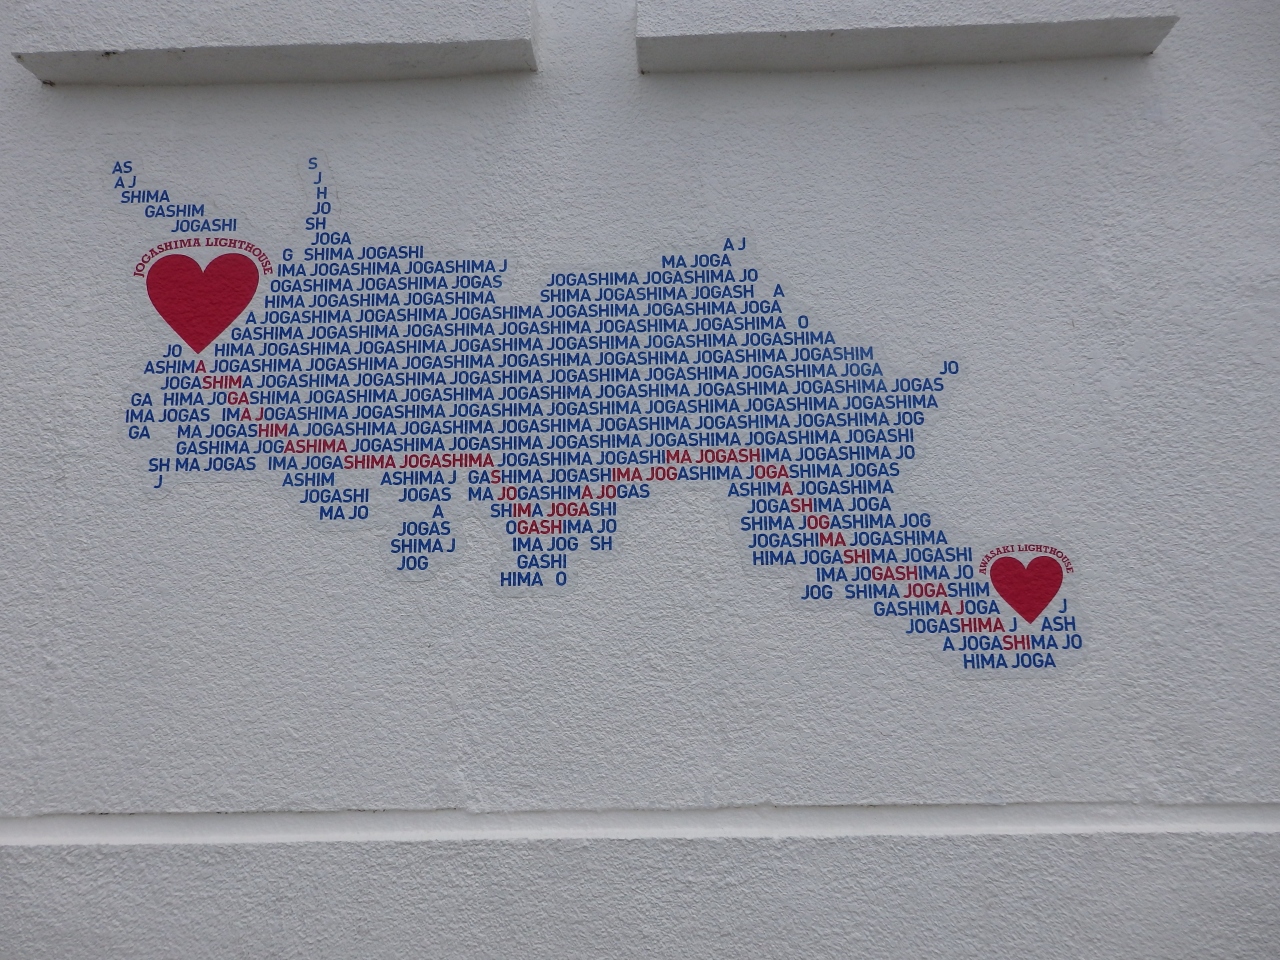 AS
S
A J
J
SHIMA
H
GASHIM
JO
JOGASHI
SH
JOGASHIMA LIGHTHOUSE
JOGA
A J
G SHIMA JOGASHI
MA JOGA
IMA JOGASHIMA JOGASHIMA J
OGASHIMA JOGASHIMA JOGAS
JOGASHIMA JOGASHIMA JO
HIMA JOGASHIMA JOGASHIMA
SHIMA JOGASHIMA JOGASH A
A JOGASHIMA JOGASHIMA JOGASHIMA JOGASHIMA JOGASHIMA JOGA
GASHIMA JOGASHIMA JOGASHIMA JOGASHIMA JOGASHIMA JOGASHIMA O
JO HIMA JOGASHIMA JOGASHIMA JOGASHIMA JOGASHIMA JOGASHIMA JOGASHIMA
ASHIMA JOGASHIMA JOGASHIMA JOGASHIMA JOGASHIMA JOGASHIMA JOGASHIMA JOGASHIM
JOGASHIMA JOGASHIMA JOGASHIMA JOGASHIMA JOGASHIMA JOGASHIMA JOGASHIMA JOGA JO
GA HIMA JOGASHIMA JOGASHIMA JOGASHIMA JOGASHIMA JOGASHIMA JOGASHIMA JOGASHIMA JOGAS
IMA JOGAS IMA JOGASHIMA JOGASHIMA JOGASHIMA JOGASHIMA JOGASHIMA JOGASHIMA JOGASHIMA
GA MA JOGASHIMA JOGASHIMA JOGASHIMA JOGASHIMA JOGASHIMA JOGASHIMA JOGASHIMA JOG
GASHIMA JOGASHIMA JOGASHIMA JOGASHIMA JOGASHIMA JOGASHIMA JOGASHIMA JOGASHI
SH MA JOGAS IMA JOGASHIMA JOGASHIMA JOGASHIMA JOGASHIMA JOGASHIMA JOGASHIMA JO
J ASHIM ASHIMA J GASHIMA JOGASHIMA JOGASHIMA JOGASHIMA JOGAS
JOGASHI JOGAS MA JOGASHIMA JOGAS ASHIMA JOGASHIMA
MA JO A SHIMA JOGASHI JOGASHIMA JOGA
JOGAS OGASHIMA JO SHIMA JOGASHIMA JOG
SHIMA J IMA JOG SH JOGASHIMA JOGASHIMA
JOG GASHI HIMA JOGASHIMA JOGASHI
AWASAKI LIGHTHOUSE
HIMA O IMA JOGASHIMA JO
JOG SHIMA JOGASHIM
GASHIMA JOGA J
JOGASHIMA J ASH
A JOGASHIMA JO
HIMA JOGA